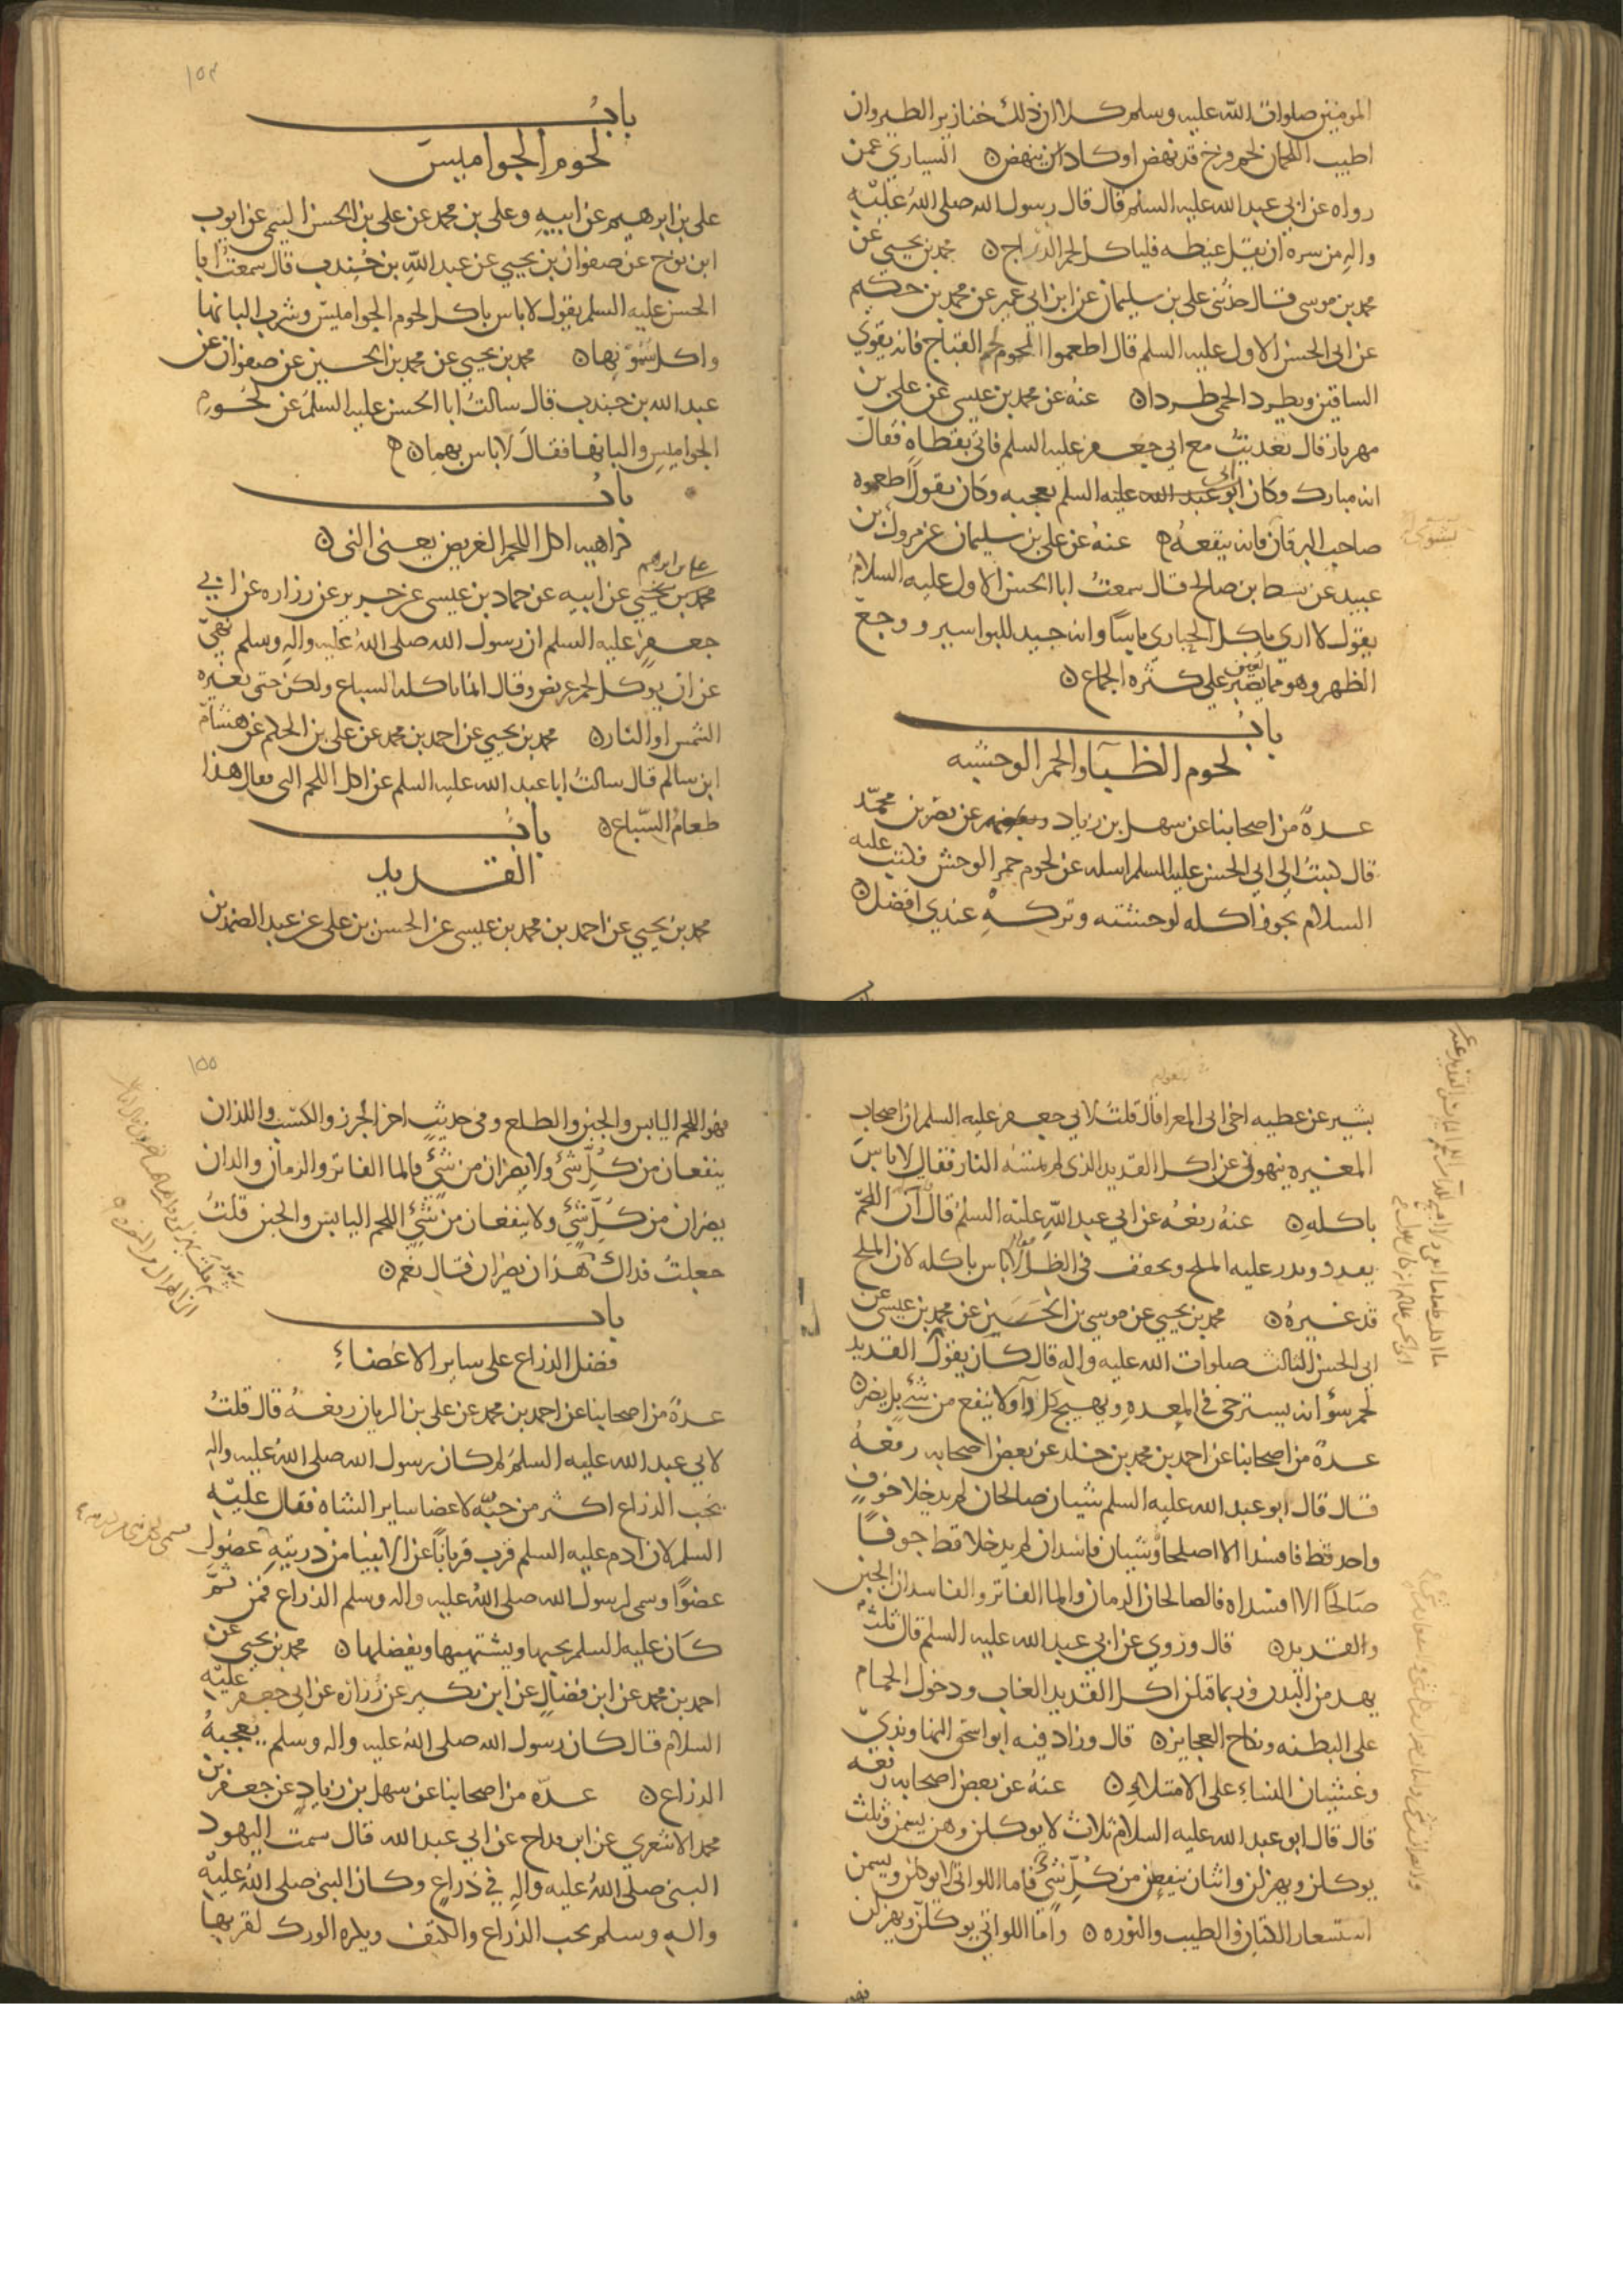 المومنين صلوات الله عليه وسلم كلا ان ذلك خنازير الطير وان
اطيب اللحمان لحم فرخ قد نهض او كاد ان ينهض ن السياري عمن
رواه عن ابي عبد الله عليه السلم قال قال رسول الله صلى الله عليه
واله من سره ان يقتل غيظه فلياكل لحم الدراج ن محمد بن يحيي عن
محمد بن موسى قال حدثني علي بن سليمان عن ابن ابي عمير عن محمد بن حكيم
عن ابي الحسن الاول عليه السلم قال اطعموا المحموم لحم القباج فانه يقوي
الساقين ويطرد الحمى طردا ن عنه عن محمد بن عيسى عن علي بن
مهزيار قال تغديت مع ابي جعفر عليه السلم فاتي بقطاه فقال
انه مبارك وكان ابي عليه السلم يعجبه وكان يقول اطعموه
صاحب اليرقان فانه ينفعه ن عنه عن علي بن سليمان عن مروك بن
عبيد عن نشيط بن صالح قال سمعت ابا الحسن الاول عليه السلام
يقول لا اري باكل الحباري باسا وانه جيد للبواسير ووجع
الظهر وهو مما يعين على كثره الجماع ن
باب
لحوم الظبآ والحمر الوحشيه
عدة من اصحابنا عن سهل بن زياد عن نصر بن محمد
قال كتبت الى ابي الحسن عليه السلم اسله عن لحوم حمر الوحش فكتب عليه
السلام يجوز اكله لوحشته وتركه عندي افضل ن
١٥٤
باب
لحوم الجواميس
علي بن ابرهيم عن ابيه وعلي بن محمد عن علي بن الحسن التيمي عن ايوب
ابن نوح عن صفوان بن يحيي عن عبد الله بن جندب قال سمعت ابا
الحسن عليه السلم يقول لا باس باكل لحوم الجواميس وشرب البانها
واكل سمونها ن محمد بن يحيي عن محمد بن الحسين عن صفوان عن
عبد الله بن جندب قال سالت ابا الحسن عليه السلم عن لحوم
الجواميس والبانها فقال لا باس بهما ن
باب
كراهيه اكل اللحم الغريض يعني الني ن
علي بن ابرهيم
محمد بن يحيي عن ابيه عن حماد بن عيسى عن حريز عن زراره عن ابي
جعفر عليه السلم ان رسول الله صلى الله عليه واله وسلم نهي
عن ان يوكل لحم غريض وقال انما ياكله السباع ولكن حتى تغيره
الشمس او النار ن محمد بن يحيي عن احمد بن محمد عن علي بن الحكم عن هشام
ابن سالم قال سالت ابا عبد الله عليه السلم عن اكل اللحم الني فقال هذا
طعام السباع ن
باب
القديد
محمد بن يحيي عن احمد بن محمد بن عيسى عن الحسن بن علي عن عبد الصمد بن
بشير عن عطيه اخي ابي المعرا قال قلت لابي جعفر عليه السلم ان اصحاب
المغيره ينهوني عن اكل القديد الذي لم تمسه النار فقال لا باس
باكله ن عنه رفعه عن ابي عبد الله عليه السلم قال ان اللحم
يقدد ويدر عليه الملح ويجفف في الظل فقال لا باس باكله لان الملح
قد غيره ن محمد بن يحيي عن موسي بن الحسين عن محمد بن عيسى عن
ابي الحسن الثالث صلوات الله عليه واله قال كان يقول القديد
لحم سؤ انه يسترخي في المعده ويهيج كل دآ ولا ينفع من شئ بل يضر ن
عدة من اصحابنا عن احمد بن محمد بن خلد عن بعض اصحابه رفعه
قال قال ابو عبد الله عليه السلم شيان صالحان لم يدخلا جوف
واحد قط فاسدا الا اصلحا وشيان فاسدان لم يدخلا قط جوفا
صالحا الا افسداه فالصالحان الرمان والما الفاتر والفاسدان الجبن
والقديد ن قال وروي عن ابي عبد الله عليه السلم قال ثلث
يهدمن البدن وربما قتلن اكل القديد الغاب ودخول الحمام
على البطنه ونكاح العجايز ن قال وزاد فيه ابو اسحق النهاوندي
وغشيان النساء على الامتلاء ن عنه عن بعض اصحابه رفعه
قال قال ابو عبد الله عليه السلام ثلاث لا يوكلن وهن يسمن وثلث
يوكلن ويهزلن واثنان ينفعان من كل شئ فاما اللواتي لا يوكلن ويسمن
استشعار الكتان والطيب والنوره ن واما اللواتي يوكلن ويهزلن
فهو
١٥٥
فهو اللحم اليابس والجبن والطلع وفي حديث اخر الجزر والكسب واللذان
ينفعان من كل شئ ولا يضران من شئ فالما الفاتر والرمان والذان
يضران من كل شئ ولا ينفعان من شئ اللحم اليابس والجبن قلت
جعلت فداك هذان يضران فقال نعم ن
باب
فضل الذراع على ساير الاعضاء
عدة من اصحابنا عن احمد بن محمد عن علي بن الريان رفعه قال قلت
لابي عبد الله عليه السلم لم كان رسول الله صلى الله عليه واله
يحب الذراع اكثر من حبه لاعضا ساير الشاه فقال عليه
السلم لان ادم عليه السلم قرب قربانا عن الانبيا من ذريته
عضوا وسمى لرسول الله صلى الله عليه واله وسلم الذراع فمن ثم
كان عليه السلم يحبها ويشتهيها ويفضلها ن محمد بن يحيي عن
احمد بن محمد عن ابن فضال عن ابن بكير عن زراره عن ابي جعفر عليه
السلام قال كان رسول الله صلى الله عليه واله وسلم يعجبه
الذراع ن عدة من اصحابنا عن سهل بن زياد عن جعفر بن
محمد الاشعري عن ابن قداح عن ابي عبد الله قال سمت اليهود
النبي صلى الله عليه واله في ذراع وكان النبي صلى الله عليه
واله وسلم يحب الذراع والكتف ويكره الورك لقربها